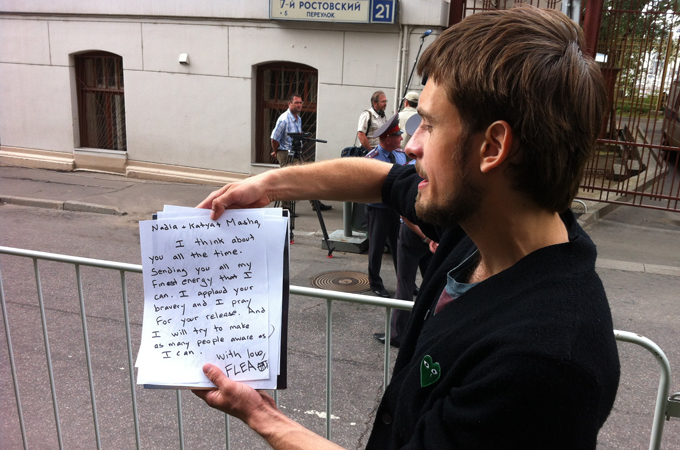 7-Й РОСТОВСКИЙ
ПЕРЕУЛОК
5
21
Nadia + Katya + Masha,
I think about
you all the time.
Sending you all my
finest energy that I
can. I applaud your
bravery and I pray
for your release. And
I will try to make
as many people aware as
I can. with love,
FLEA